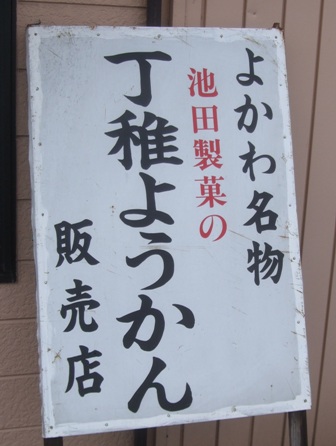 よかわ名物
池田製菓の
丁稚ようかん
販売店